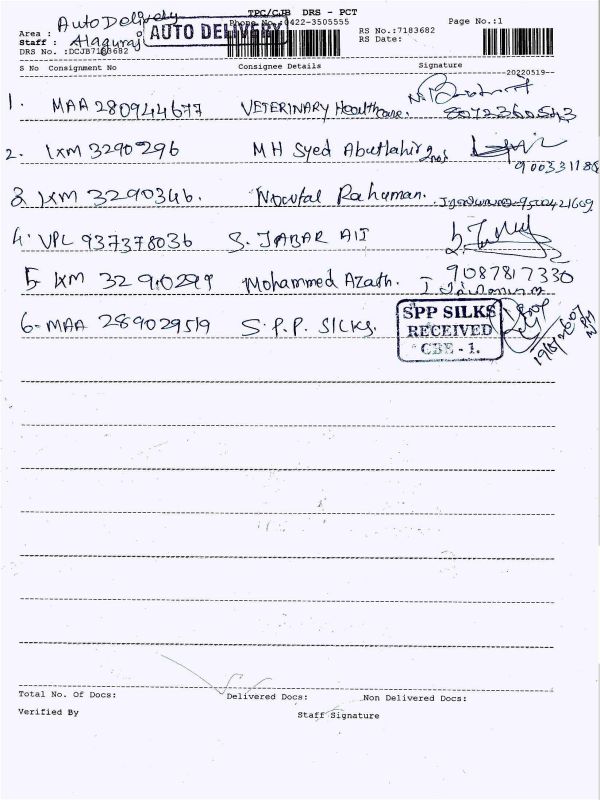 TPC/CJB DRS - PCT
Area : Auto Delivery
AUTO DELIVERY
Phone No.:0422-3505555
Page No.:1
Staff : Alaguraj
RS No.:7183682
RS Date:
DRS No. :DCJB7183682
S No Consignment No Consignee Details Signature
20220519
1. MAA 280944677 VETERINARY Healthcare.
2. IXM 3290296 MH Syed Abuthahir
3 IXM 3290346. Nowfal Rahuman.
4. VPL 937378036 S. JABAR ALI
5 IXM 3290299 Mohammed Azath. 9087817330
6. MAA 289029519 S.P.P. SILKS.
SPP SILKS
RECEIVED
CBE - 1.
Total No. Of Docs: Delivered Docs: Non Delivered Docs:
Verified By Staff Signature